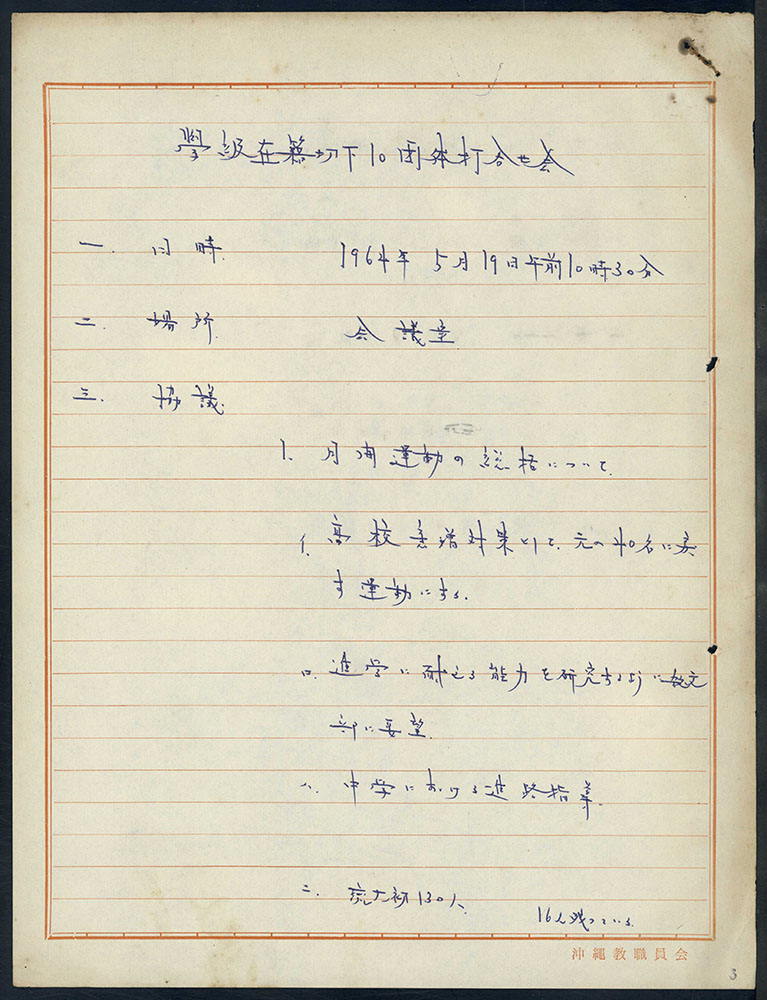 學級在籍切下10団体打合せ会
一. 日時. 1964年 5月19日午前10時30分
二. 場所. 会議室
三. 協議.
1. 月間運動の総括について.
イ. 高校急増対策として、元の40名に戻
す運動にする.
ロ. 進学に耐える能力を研究するように文
部に要望.
ハ. 中学における進路指導.
ニ. 琉大初130人
16人残っている.
沖縄教職員会
3